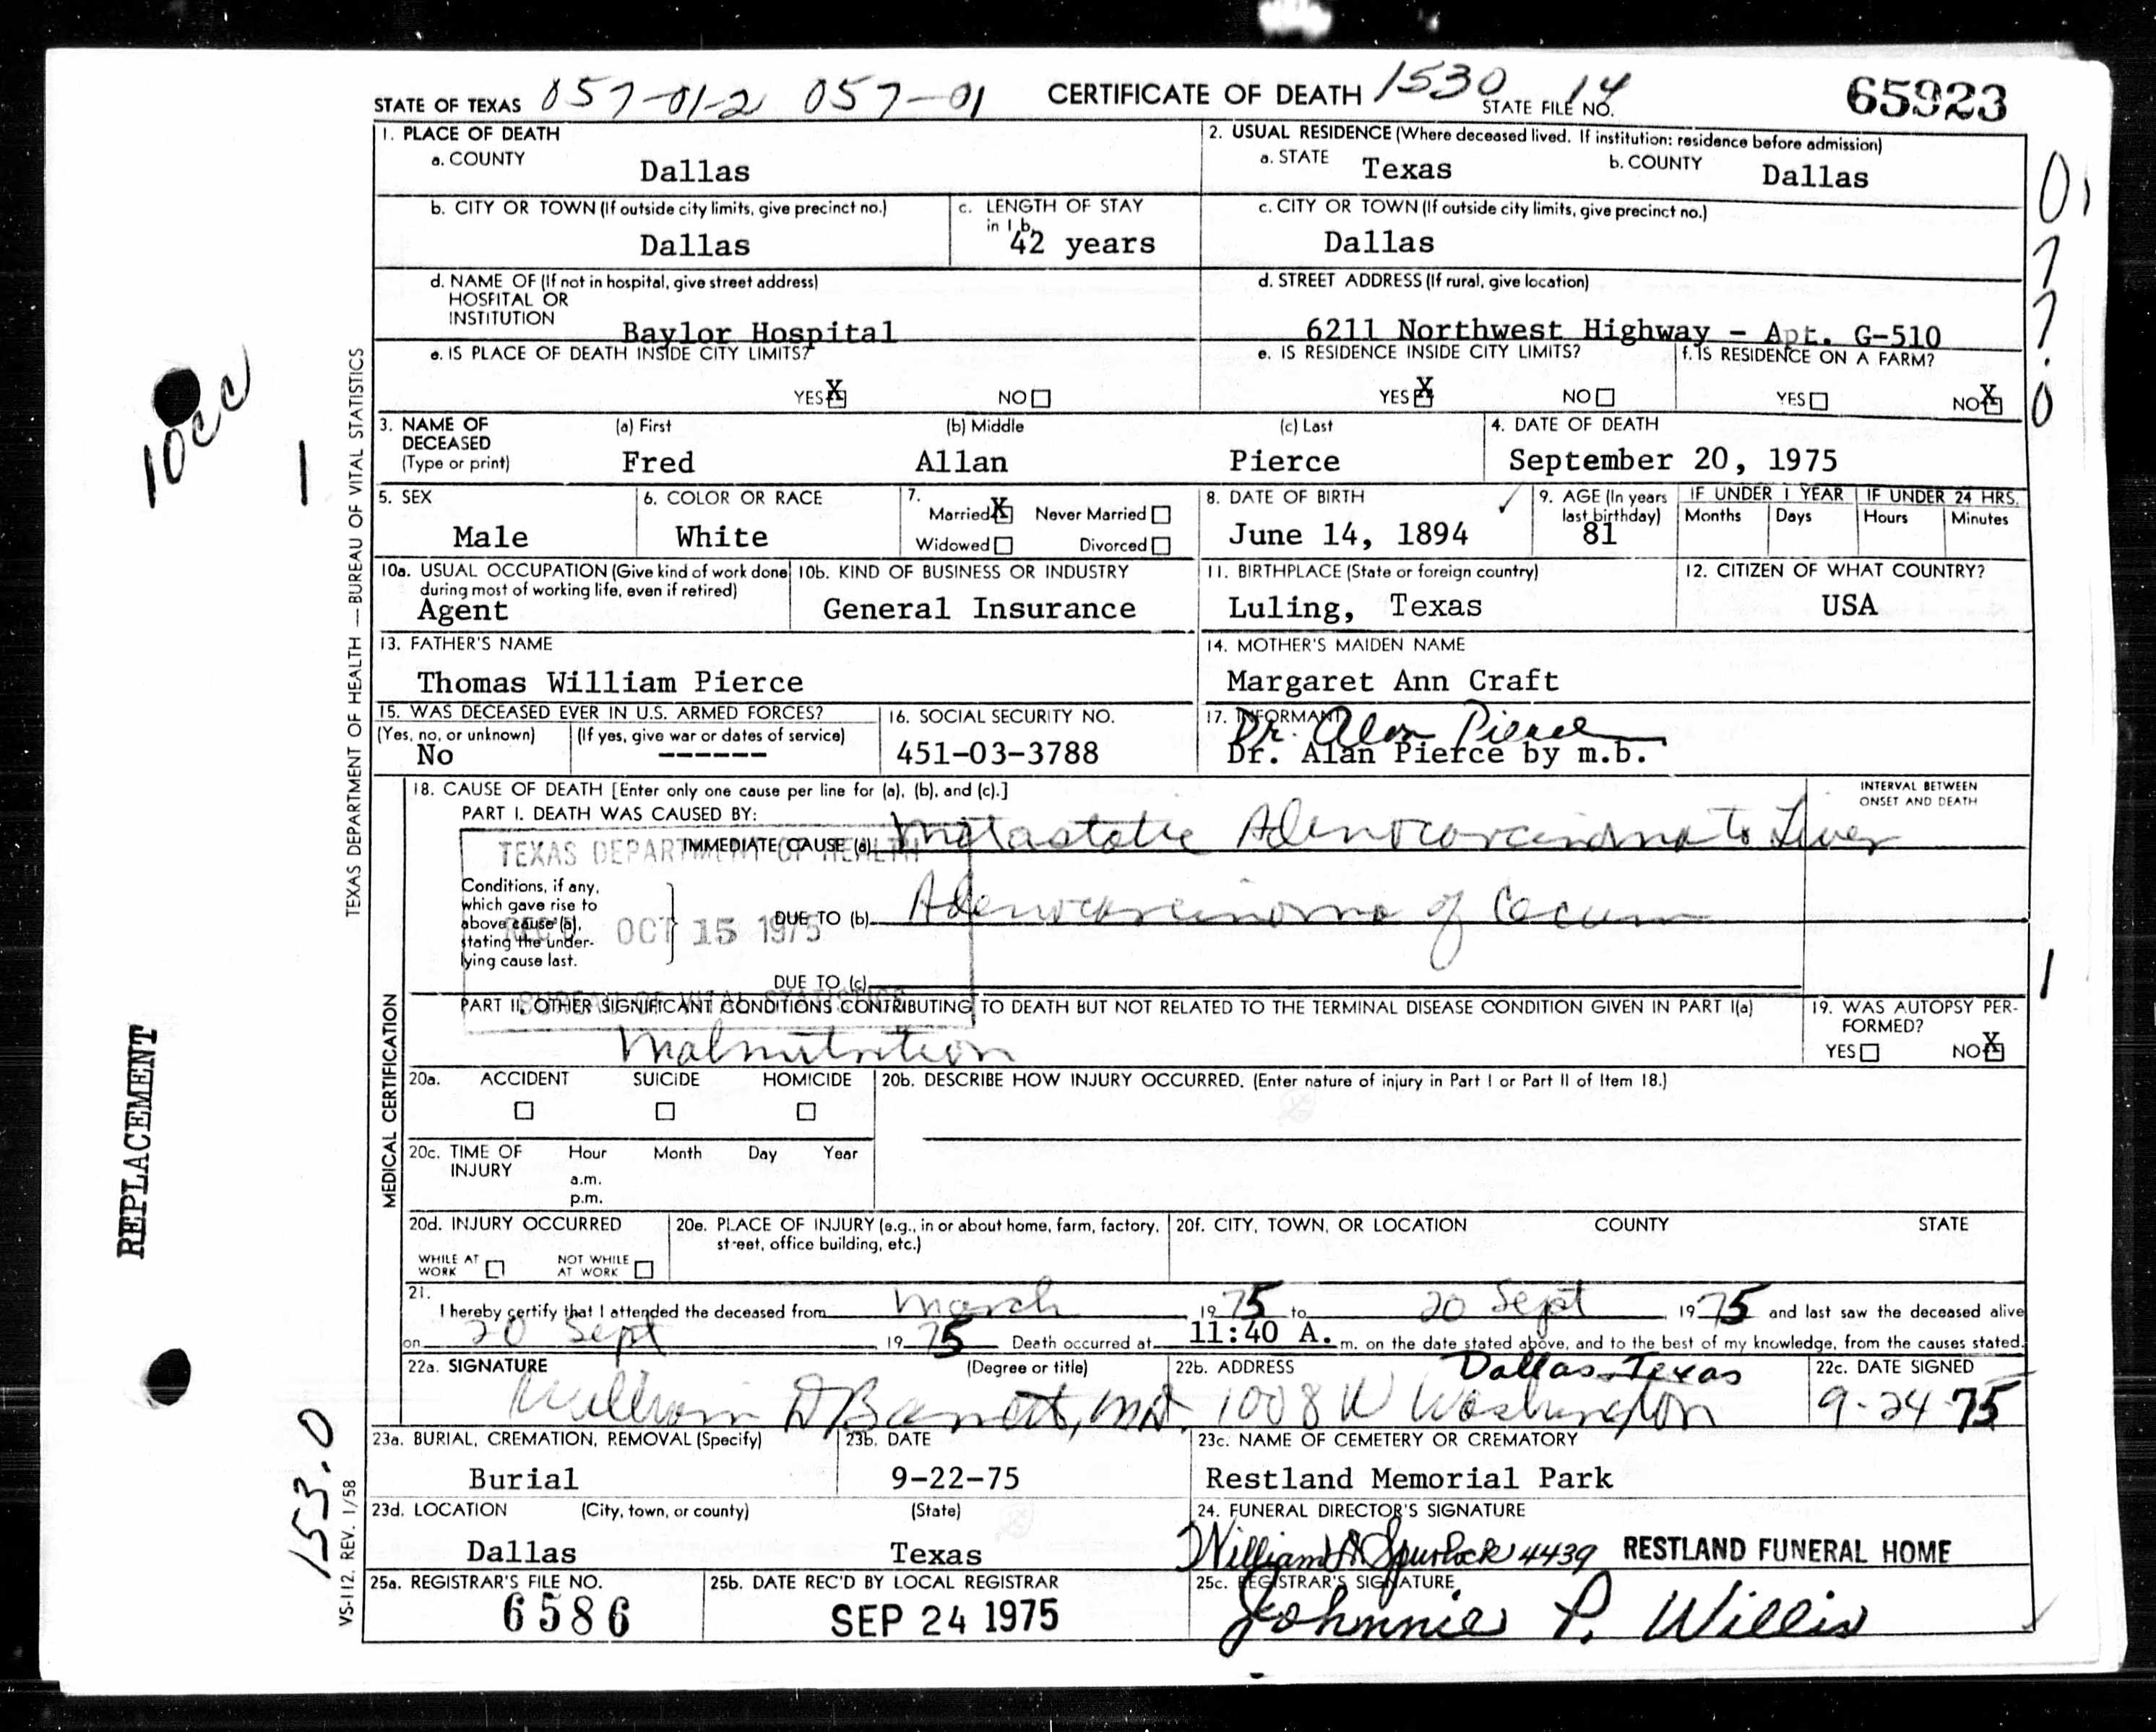 STATE OF TEXAS 057-01-2 057-01 CERTIFICATE OF DEATH 1530 14 STATE FILE NO. 65923
1. PLACE OF DEATH
a. COUNTY Dallas
2. USUAL RESIDENCE (Where deceased lived. If institution: residence before admission)
a. STATE Texas b. COUNTY Dallas
b. CITY OR TOWN (If outside city limits, give precinct no.)
Dallas
c. LENGTH OF STAY
in 1 b.
42 years
c. CITY OR TOWN (If outside city limits, give precinct no.)
Dallas
d. NAME OF (If not in hospital, give street address)
HOSPITAL OR
INSTITUTION Baylor Hospital
d. STREET ADDRESS (If rural, give location)
6211 Northwest Highway - Apt. G-510
e. IS PLACE OF DEATH INSIDE CITY LIMITS?
YES X NO
e. IS RESIDENCE INSIDE CITY LIMITS?
YES X NO
f. IS RESIDENCE ON A FARM?
YES NO X
3. NAME OF
DECEASED
(Type or print)
(a) First (b) Middle (c) Last
Fred Allan Pierce
4. DATE OF DEATH
September 20, 1975
5. SEX
Male
6. COLOR OR RACE
White
7.
Married X Never Married
Widowed Divorced
8. DATE OF BIRTH ✓
June 14, 1894
9. AGE (In years
last birthday)
81
IF UNDER 1 YEAR IF UNDER 24 HRS.
Months Days Hours Minutes
10a. USUAL OCCUPATION (Give kind of work done
during most of working life, even if retired)
Agent
10b. KIND OF BUSINESS OR INDUSTRY
General Insurance
11. BIRTHPLACE (State or foreign country)
Luling, Texas
12. CITIZEN OF WHAT COUNTRY?
USA
13. FATHER'S NAME
Thomas William Pierce
14. MOTHER'S MAIDEN NAME
Margaret Ann Craft
15. WAS DECEASED EVER IN U.S. ARMED FORCES?
(Yes, no, or unknown) (If yes, give war or dates of service)
No ------
16. SOCIAL SECURITY NO.
451-03-3788
17. INFORMANT
Dr. Alan Pierce
Dr. Alan Pierce by m.b.
18. CAUSE OF DEATH [Enter only one cause per line for (a), (b), and (c).]
INTERVAL BETWEEN
ONSET AND DEATH
PART I. DEATH WAS CAUSED BY:
IMMEDIATE CAUSE (a) Metastatic Adenocarcinoma to Liver
TEXAS DEPARTMENT OF HEALTH
Conditions, if any,
which gave rise to
above cause (a),
stating the under-
lying cause last.
DUE TO (b) Adenocarcinoma of Cecum
REC'D OCT 15 1975
DUE TO (c)
BUREAU OF VITAL STATISTICS
PART II. OTHER SIGNIFICANT CONDITIONS CONTRIBUTING TO DEATH BUT NOT RELATED TO THE TERMINAL DISEASE CONDITION GIVEN IN PART I(a)
Malnutrition
19. WAS AUTOPSY PER-
FORMED?
YES NO X
20a. ACCIDENT SUICIDE HOMICIDE
20b. DESCRIBE HOW INJURY OCCURRED. (Enter nature of injury in Part I or Part II of Item 18.)
20c. TIME OF
INJURY
Hour Month Day Year
a.m.
p.m.
20d. INJURY OCCURRED
WHILE AT
WORK
NOT WHILE
AT WORK
20e. PLACE OF INJURY (e.g., in or about home, farm, factory,
street, office building, etc.)
20f. CITY, TOWN, OR LOCATION COUNTY STATE
21.
I hereby certify that I attended the deceased from March 1975 to 20 Sept 1975 and last saw the deceased alive
on 20 Sept 1975 Death occurred at 11:40 A. m. on the date stated above, and to the best of my knowledge, from the causes stated.
22a. SIGNATURE (Degree or title)
William D Barnett, MD.
22b. ADDRESS Dallas, Texas
1008 N Washington
22c. DATE SIGNED
9-24-75
23a. BURIAL, CREMATION, REMOVAL (Specify)
Burial
23b. DATE
9-22-75
23c. NAME OF CEMETERY OR CREMATORY
Restland Memorial Park
23d. LOCATION (City, town, or county) (State)
Dallas Texas
24. FUNERAL DIRECTOR'S SIGNATURE
William A Spurlock 4439 RESTLAND FUNERAL HOME
25a. REGISTRAR'S FILE NO.
6586
25b. DATE REC'D BY LOCAL REGISTRAR
SEP 24 1975
25c. REGISTRAR'S SIGNATURE
Johnnie P. Willis
TEXAS DEPARTMENT OF HEALTH — BUREAU OF VITAL STATISTICS
MEDICAL CERTIFICATION
VS-112. REV. 1/58
REPLACEMENT
153.0
1
01
7
7.
0
1